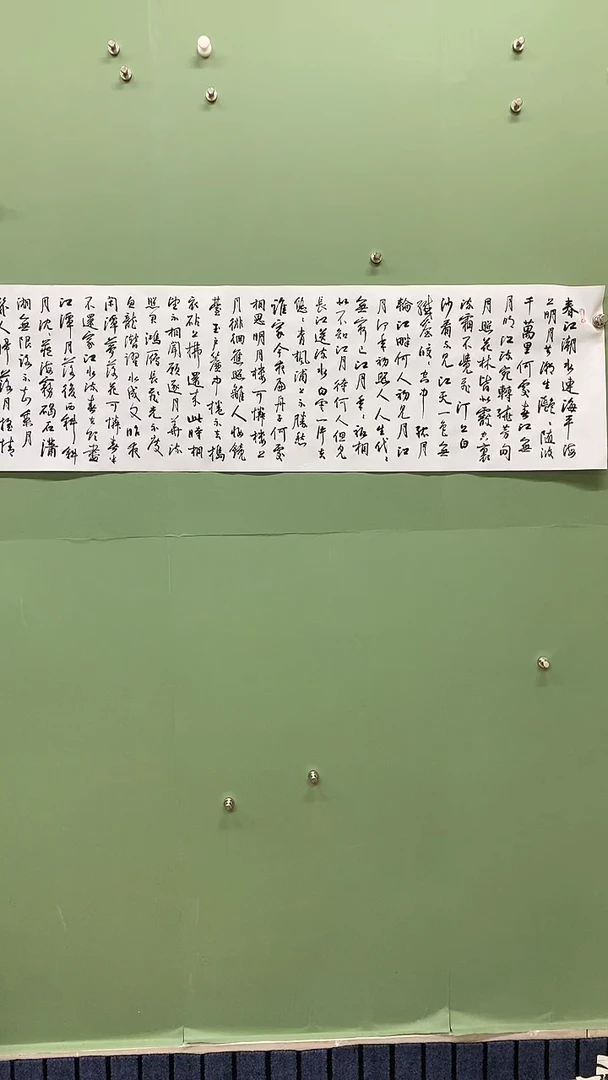 春江潮水連海平海
上明月共潮生灩〻隨波
千萬里何處春江無
月明江流宛轉繞芳甸
月照花林皆似霰空裏
流霜不覺飛汀上白
沙看不見江天一色無
纖塵皎〻空中孤月
輪江畔何人初見月江
月何年初照人人生代〻
無窮已江月年〻祇相
似不知江月待何人但見
長江送流水白雲一片去
悠〻青楓浦上不勝愁
誰家今夜扁舟子何處
相思明月樓可憐樓上
月徘徊應照離人妝鏡
臺玉戶簾中捲不去搗
衣砧上拂還來此時相
望不相聞願逐月華流
照君鴻雁長飛光不度
魚龍潛躍水成文昨夜
閑潭夢落花可憐春半
不還家江水流春去欲盡
江潭月落復西斜斜
月沉〻藏海霧碣石瀟
湘無限路不知乘月
幾人歸落月搖情